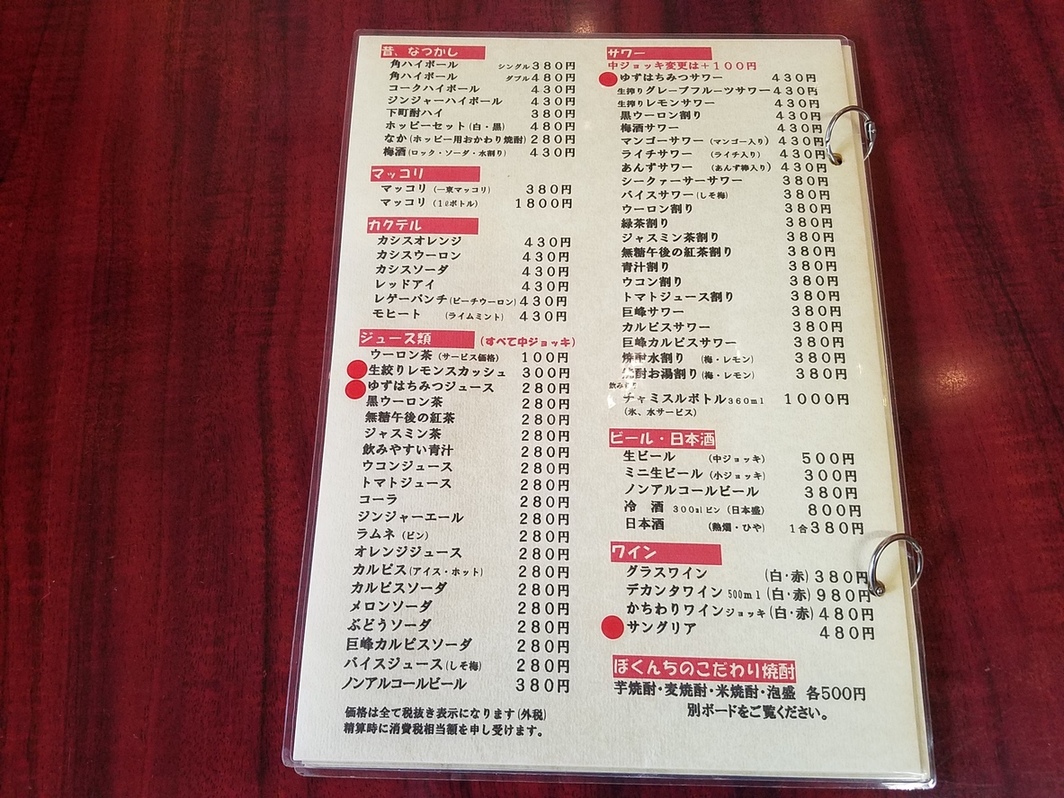 昔、なつかし
角ハイボール シングル380円
角ハイボール ダブル480円
コークハイボール 430円
ジンジャーハイボール 430円
下町酎ハイ 380円
ホッピーセット(白・黒) 480円
なか(ホッピー用おかわり焼酎) 280円
梅酒(ロック・ソーダ・水割り) 430円
マッコリ
マッコリ(一東マッコリ) 380円
マッコリ(1ℓボトル) 1800円
カクテル
カシスオレンジ 430円
カシスウーロン 430円
カシスソーダ 430円
レッドアイ 430円
レゲーパンチ(ピーチウーロン) 430円
モヒート (ライムミント) 430円
ジュース類 (すべて中ジョッキ)
ウーロン茶(サービス価格) 100円
生絞りレモンスカッシュ 300円
ゆずはちみつジュース 280円
黒ウーロン茶 280円
無糖午後の紅茶 280円
ジャスミン茶 280円
飲みやすい青汁 280円
ウコンジュース 280円
トマトジュース 280円
コーラ 280円
ジンジャーエール 280円
ラムネ(ビン) 280円
オレンジジュース 280円
カルピス(アイス・ホット) 280円
カルピスソーダ 280円
メロンソーダ 280円
ぶどうソーダ 280円
巨峰カルピスソーダ 280円
バイスジュース(しそ梅) 280円
ノンアルコールビール 380円
価格は全て税抜き表示になります(外税)
精算時に消費税相当額を申し受けます。
サワー
中ジョッキ変更は+100円
ゆずはちみつサワー 430円
生搾りグレープフルーツサワー 430円
生搾りレモンサワー 430円
黒ウーロン割り 430円
梅酒サワー 430円
マンゴーサワー (マンゴー入り) 430円
ライチサワー (ライチ入り) 430円
あんずサワー (あんず棒入り) 430円
シークァーサーサワー 380円
バイスサワー(しそ梅) 380円
ウーロン割り 380円
緑茶割り 380円
ジャスミン茶割り 380円
無糖午後の紅茶割り 380円
青汁割り 380円
ウコン割り 380円
トマトジュース割り 380円
巨峰サワー 380円
カルピスサワー 380円
巨峰カルピスサワー 380円
焼酎水割り (梅・レモン) 380円
焼酎お湯割り(梅・レモン) 380円
チャミスルボトル360ml 1000円
(氷、水サービス)
ビール・日本酒
生ビール (中ジョッキ) 500円
ミニ生ビール (小ジョッキ) 300円
ノンアルコールビール 380円
冷 酒 300mlビン (日本盛) 800円
日本酒 (熱燗・ひや) 1合380円
ワイン
グラスワイン (白・赤) 380円
デカンタワイン500ml (白・赤) 980円
かちわりワインジョッキ(白・赤) 480円
サングリア 480円
ぼくんちのこだわり焼酎
芋焼酎・麦焼酎・米焼酎・泡盛 各500円
別ボードをご覧ください。